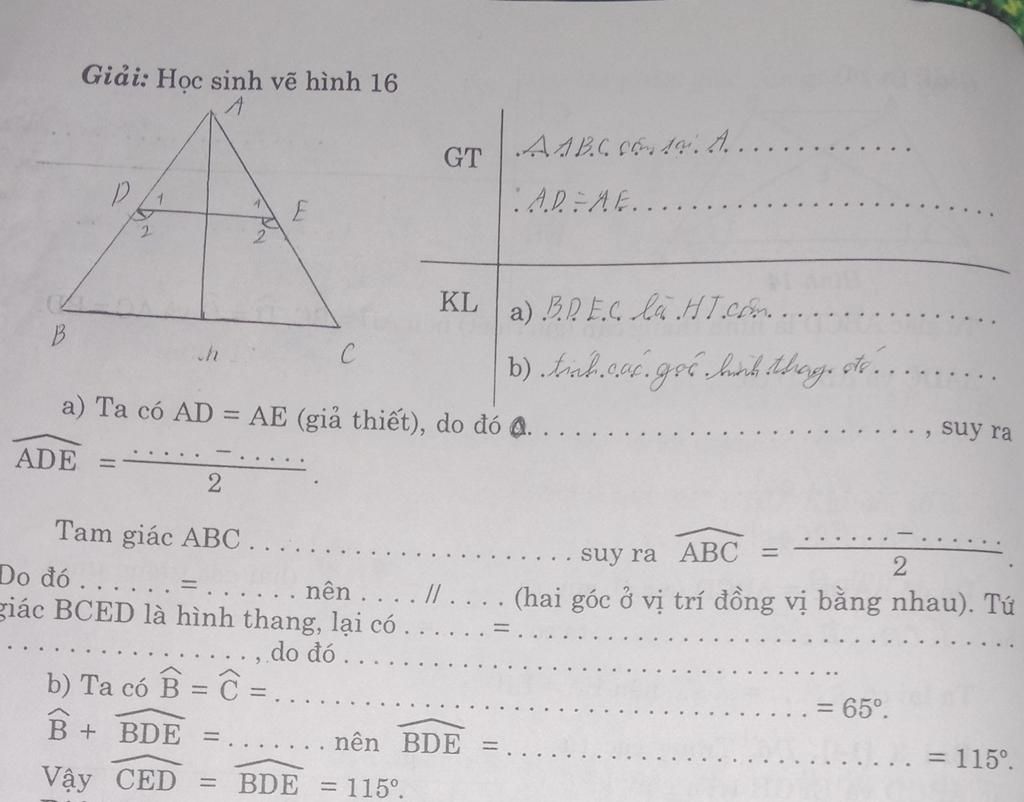 Giải: Học sinh vẽ hình 16
A
D 1 1 E
2 2
B h C
GT ΔABC cân tại A
AD = AE
KL a) BDEC là HT cân
b) tính các góc hình thang đó
a) Ta có AD = AE (giả thiết), do đó ............................, suy ra
ADE = ..... – ..... / 2 .
Tam giác ABC ...................... suy ra ABC = ...... – ...... / 2 .
Do đó ...... = ....... nên .... // .... (hai góc ở vị trí đồng vị bằng nhau). Tứ
giác BCED là hình thang, lại có ...... = ..................................
................., do đó ..................................
b) Ta có B = C = ..................................... = 65°.
B + BDE = ....... nên BDE = ............................. = 115°.
Vậy CED = BDE = 115°.